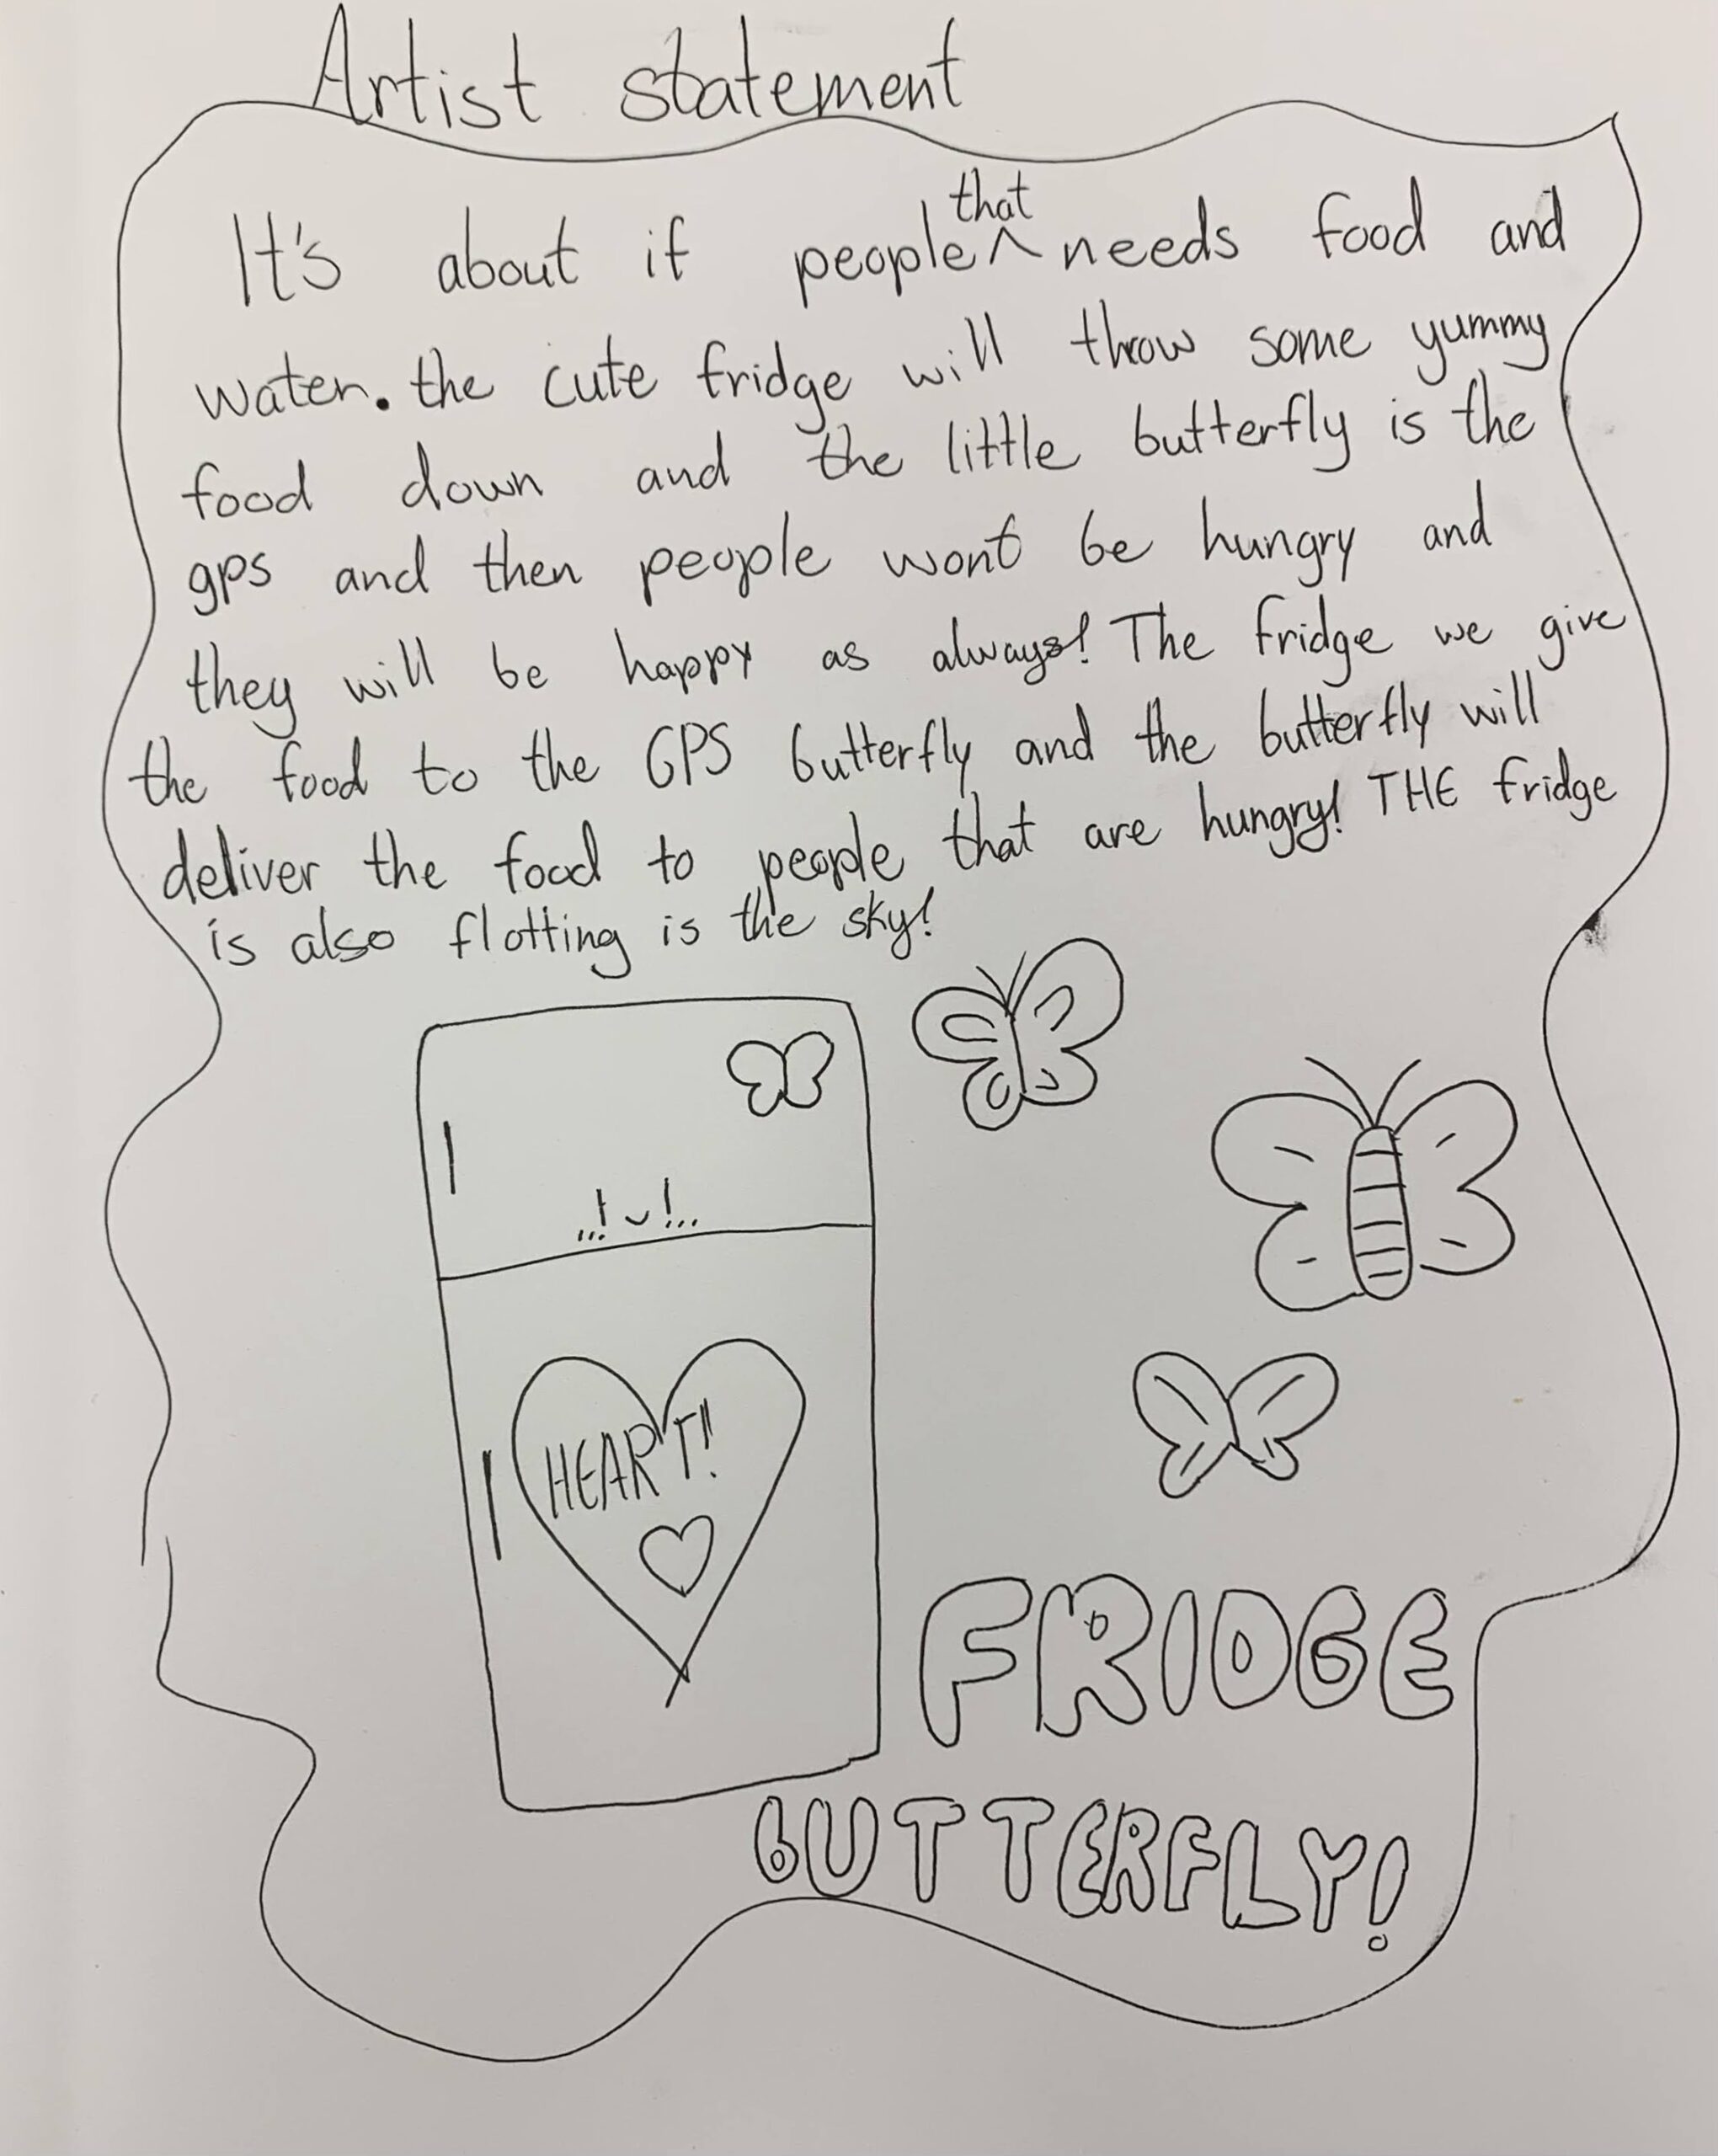 Artist statement
It's about if people that needs food and
water. the cute fridge will throw some yummy
food down and the little butterfly is the
gps and then people wont be hungry and
they will be happy as always! The fridge we give
the food to the GPS butterfly and the butterfly will
deliver the food to people that are hungry! THE fridge
is also flotting is the sky!
HEART!
FRIDGE
BUTTERFLY!